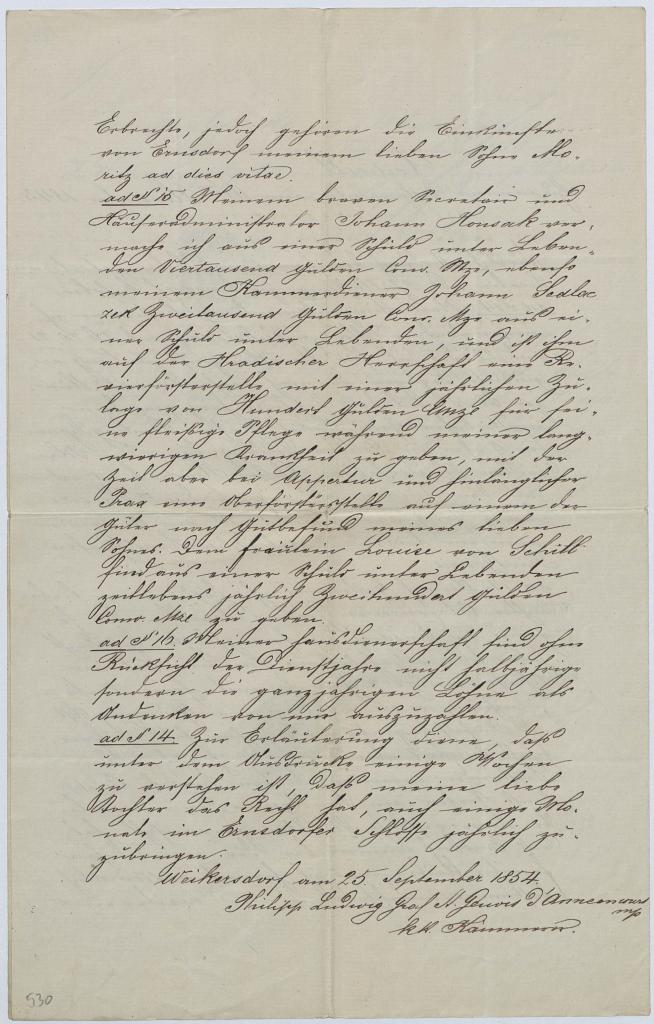 Erbrechte, jedoch gehören die Einkünfte
von Ernsdorf meinem lieben Sohne Mo-
ritz ad dies vitae.
ad No 15 Meinem braven Secretair und
Häuseradministrator Johann Honsak ver-
mache ich aus einer Schuld unter Leben-
den Viertausend Gulden Conv. Mze, ebenso
meinem Kammerdiener Johann Sedlac
zek Zweitausend Gulden Conv. Mze aus ei-
ner Schuld unter Lebenden, und ist ihm
auf der Hradischer Herrschaft eine Re-
vierförsterstelle mit einer jährlichen Zu-
lage von Hundert Gulden CMze für sei-
ne fleißige Pflege während meiner lang-
wierigen Krankheit zu geben, mit der
Zeit aber bei Appertur und hinlänglicher
Prax eine Oberförstersstelle auf einem der
Güter nach Gutbefund meines lieben
Sohnes. Dem Fräulein Louise von Schill
sind aus einer Schuld unter Lebenden
zeitlebens jährlich Zweihundert Gulden
Conv. Mze zu geben.
ad No 16. Meiner Hausdienerschaft sind ohne
Rücksicht der Dienstjahre nicht halbjährige
sondern die ganzjährigen Löhne als
Andenken von mir auszuzahlen.
ad No 14. Zur Erläuterung diene, daß
unter dem Ausdrucke einige Wochen
zu verstehen ist, daß meine liebe
Tochter das Recht hat, auch einige Mo-
nate im Ernsdorfer Schloße jährlich zu-
zubringen.
Weikersdorf am 25. September 1854
Philipp Ludwig Graf St. Genois d'Anneaucourt
mp
kk. Kämmerer.
530